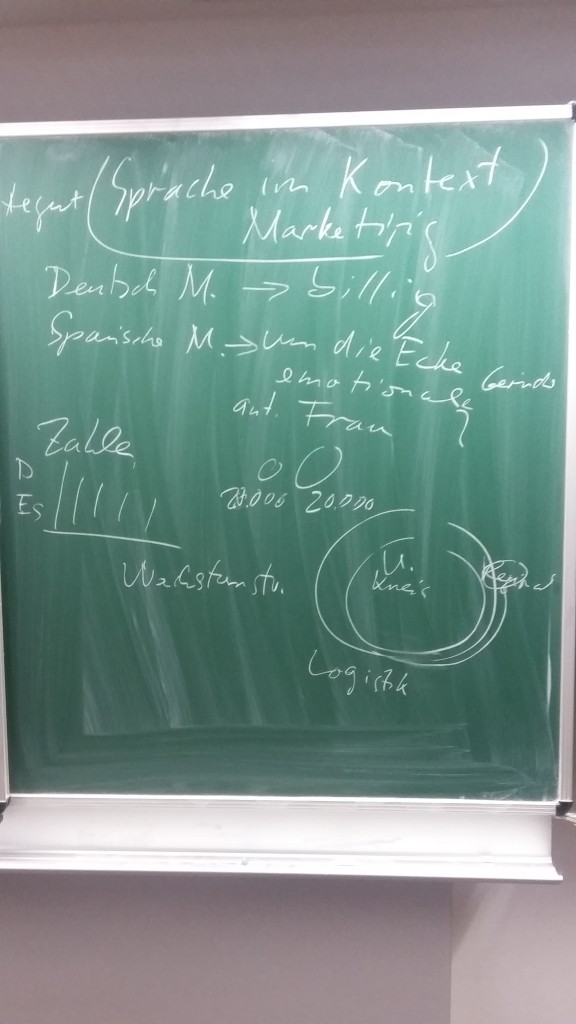 tegut Sprache im Kontext
Marketing
Deutsch M. → billig
Spanische M. → um die Ecke
emotionale
aut. Frau ?
Zahle
D
Es
20.000
Wachstumstr.
U.
Kreis
Logistik